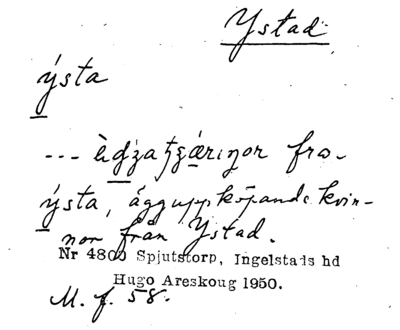 Ystad
ýsta
--- ę̀ʤaʧæ̀rıŋor fra-
ýsta, ägguppköpande kvin-
nor från Ystad.
Nr 4800 Spjutstorp, Ingelstads hd
Hugo Areskoug 1950.
M. f. 58.